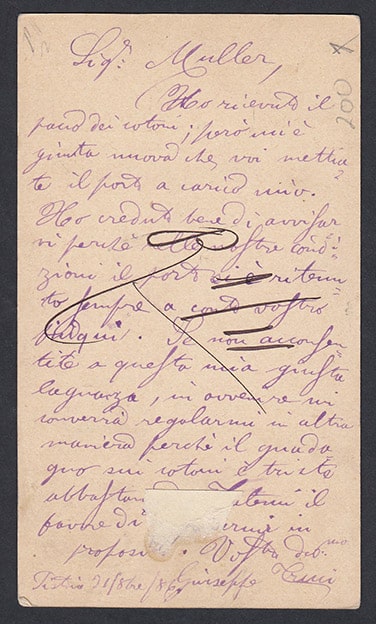 Sigr. Muller,
Ho ricevuto il
pacco dei cotoni; però mi è
giunta nuova che voi mettia-
te il porto a carico mio.
Ho creduto bene di avvisar-
vi perchè alle vostre condi-
zioni il porto si è ritenu-
to sempre a conto vostro
. Se non acconsen-
tite a questa mia giusta
lagnanza, in avvenire mi
converrà regolarmi in altra
maniera perchè il guada-
gno sui cotoni è triste
abbastan il
favore di in
proposi. Vostro devmo
21/8bre/86 Giuseppe
200